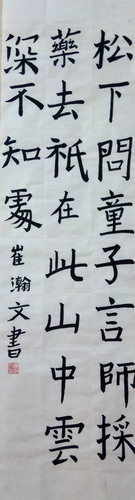 松下問童子言師採
藥去祇在此山中雲
深不知處
崔瀚文書